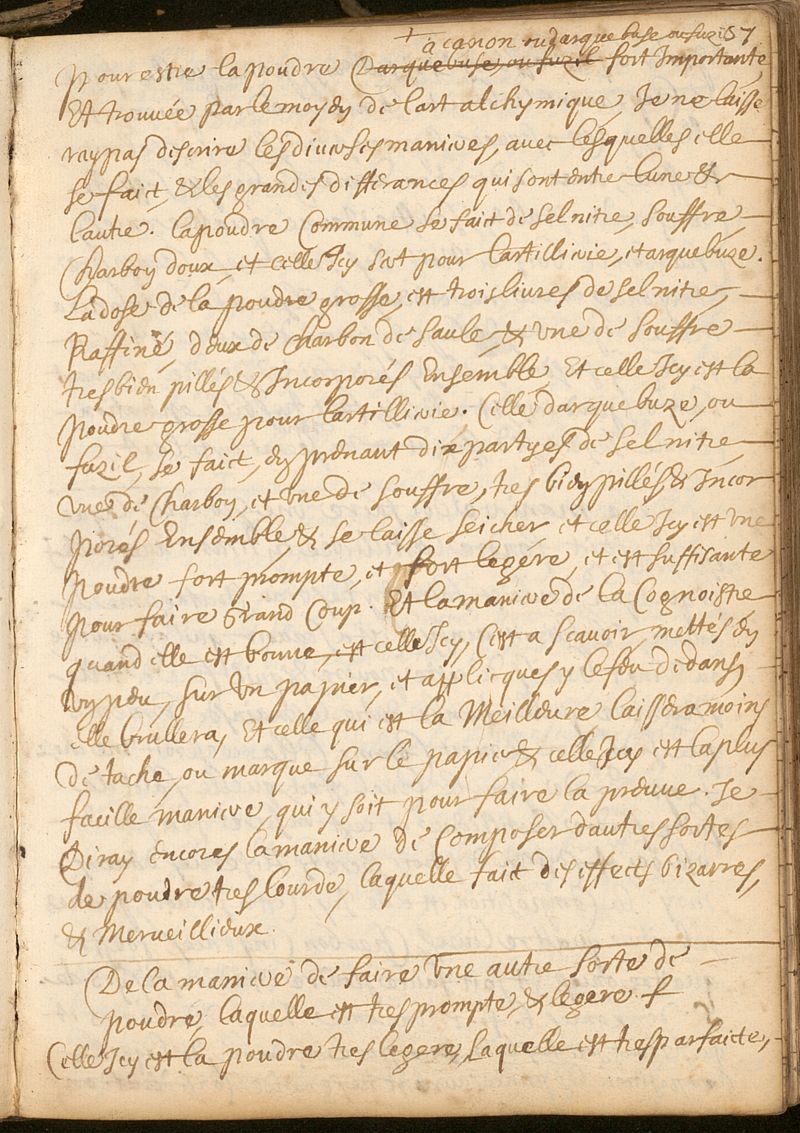 + à canon ou darquebuse ou fuzil 57
Pour estre la poudre Darquebuse, ou fuzil fort Importante,
Et trouvée par le moyen de l'art alchymique, Je ne laisse
ray pas descrire les diverses manieres, avec lesquelles elle
se faict, & les grandes differances qui sont entre l'une &
l'autre. la poudre Commune se fait de Sel nitre, Souffre,
Charbon doux, et celle Icy sert pour l'artillierie, et arquebuze.
La dose de la poudre grosse, est trois livres de Sel nitre,
Raffiné, deux de Charbon de Saule, & une de Souffre
tres bien pillés, & Incorporés Ensemble, Et celle Icy est la
poudre grosse pour l'artillierie. Celle d'arquebuze, ou
fuzil, se faict, en prenant dix partyes de Sel nitre
une de Charbon, et une de Souffre, tres bien pillés, & Incor
porés Ensemble, & se laisse seicher, et celle Icy est une
poudre fort prompte, et fort legére, et est suffisante
pour faire Grand Coup. Et la maniere de la Cognoistre
quand elle est bonne, est celle Icy, C'est a scavoir, mettés en
un peu, sur un papier, et applicques y le feu dedans,
elle brullera, Et celle qui est la Meilleure laissera moins
de tache, ou marque sur le papier & celle Icy est la plus
facille maniere, qui y soit pour faire la preuve. Je
Diray encores la maniere de Composer d'autres sortes
de poudre tres lourde, laquelle faict des effects bizarres,
& Merveillieux.
De la maniere de faire une autre sorte de
poudre, laquelle est tres prompte, & legere
Celle Icy est la poudre tres legere, Laquelle est tres parfaicte,